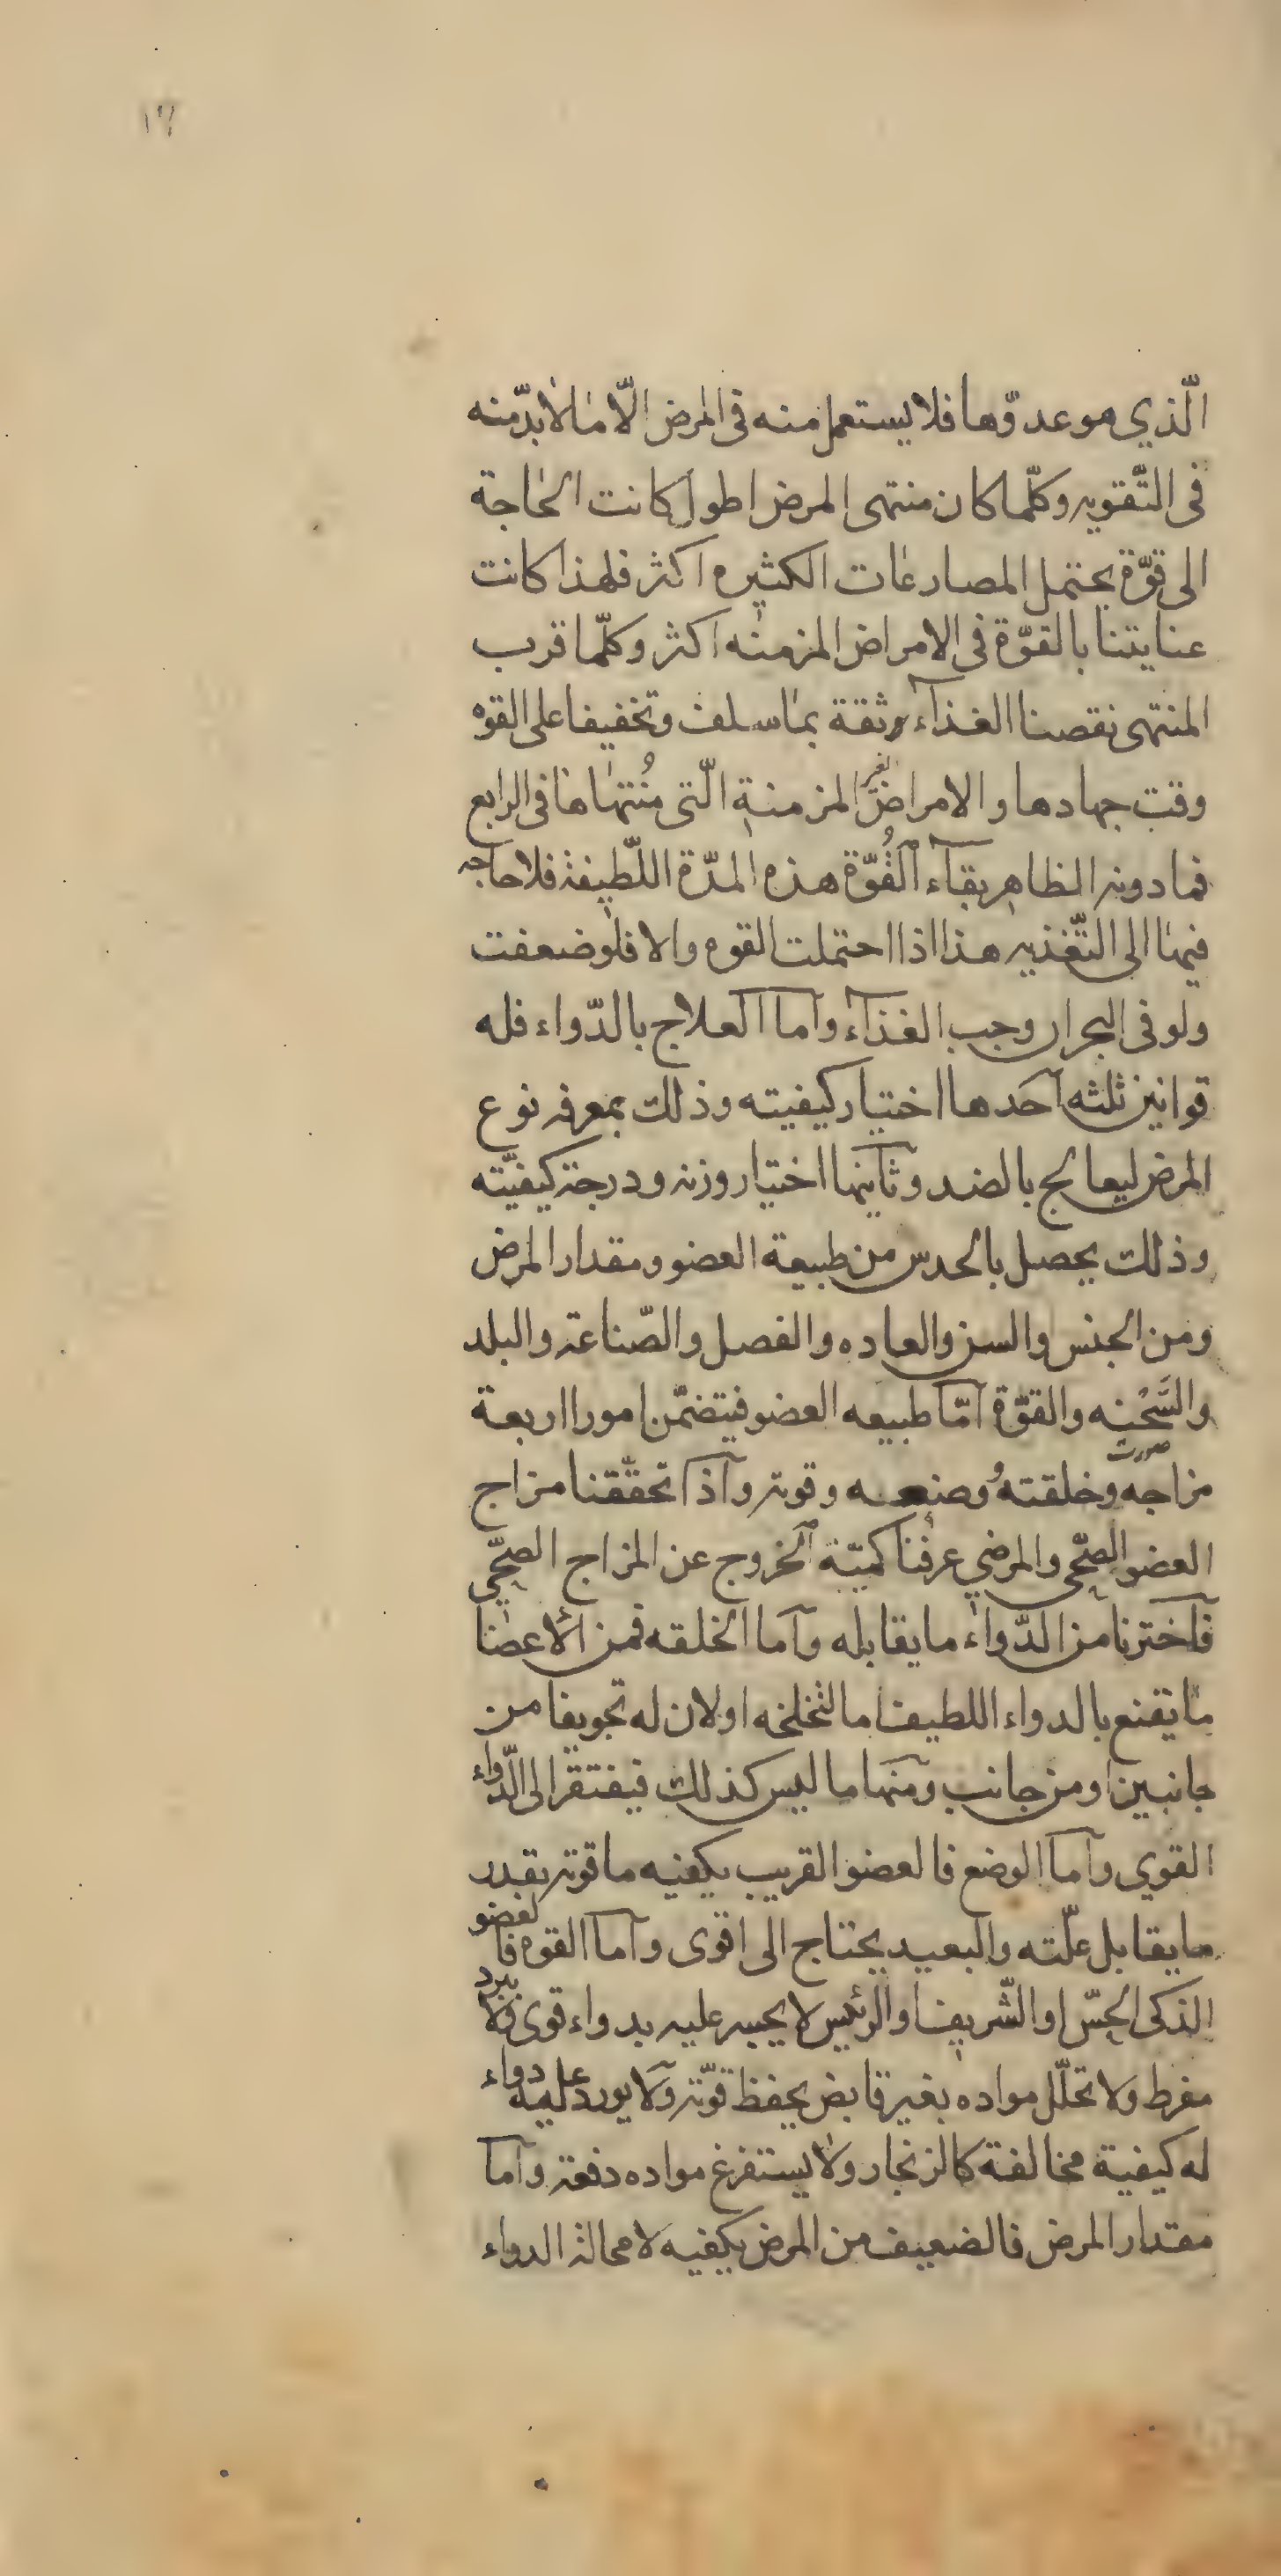 ١٦
الّذي هو عدوّها فلا يستعمل منه في المرض الّا ما لا بدّ منه
في التّقويه وكلّما كان منتهى المرض اطول كانت الحاجة
الى قوّة يحتمل المصارعات الكثيره اكثر فلهذا كانت
عنايتنا بالقوّة في الامراض المزمنه اكثر وكلّما قرب
المنتهى نقصنا الغذآء وثقة بما سلف وتخفيفا على القوه
وقت جهادها والامراض الغير المزمنة الّتي مُنتهاها في الرابع
فما دونه الظاهر بقآء القُوّة هذه المدّة اللّطيفة فلا حاجه
فيها الى التّغذيه هذا اذا احتملت القوه والا فلو ضعفت
ولو في البحران وجب الغذآء وآما العلاج بالدّواء فله
قوانين ثلثه آحدها اختيار كيفيته وذلك بمعرفه نوع
المرض ليعالج بالضد وثآنيها اختيار وزنه ودرجة كيفيّته
وذلك يحصل بالحدس من طبيعة العضو ومقدار المرض
ومن الجنس والسن والعاده والفصل والصّناعة والبلد
والسَّحْنه والقوّة آمّا طبيعه العضو فيتضمّن امورا اربعة
مزاجه وخلقته ووضعه وقوته وآذا تحقّقنا مزاج
العضو الصحّي والمرضي عرفنا كميّة الخروج عن المزاج الصحّي
فآخترنا من الدّواء ما يقابله وآما الخلقه فمن الأعضا
ما يقنع بالدواء اللطيف اما لتخلخله او لان له تجويفا من
جانبين او من جانب ومنها ما ليس كذلك فيفتقر الى الدّواء
القوي وآما الوضع فالعضو القريب يكفيه ما قوته بقدر
ما يقابل علّته والبعيد يحتاج الى اقوى وآما القوه فالعضو
الذكى الحسّ او الشّريف او الرئيس لا يجسر عليه بدواء قوى ولا يبرد
مفرط ولا تحلّل مواده بغير قابض يحفظ قوّته ولا يورد عليه دواء
له كيفية مخالفة كالزنجار ولا يستفرغ مواده دفعة وآما
مقدار المرض فالضعيف من المرض يكفيه لا محالة الدواء